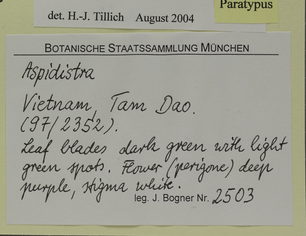 Paratypus
det. H.-J. Tillich August 2004
BOTANISCHE STAATSSAMMLUNG MÜNCHEN
Aspidistra
Vietnam, Tam Dao.
(97/2352).
Leaf blades dark green with light
green spots. Flower (perigone) deep
purple, stigma white.
leg. J. Bogner Nr. 2503